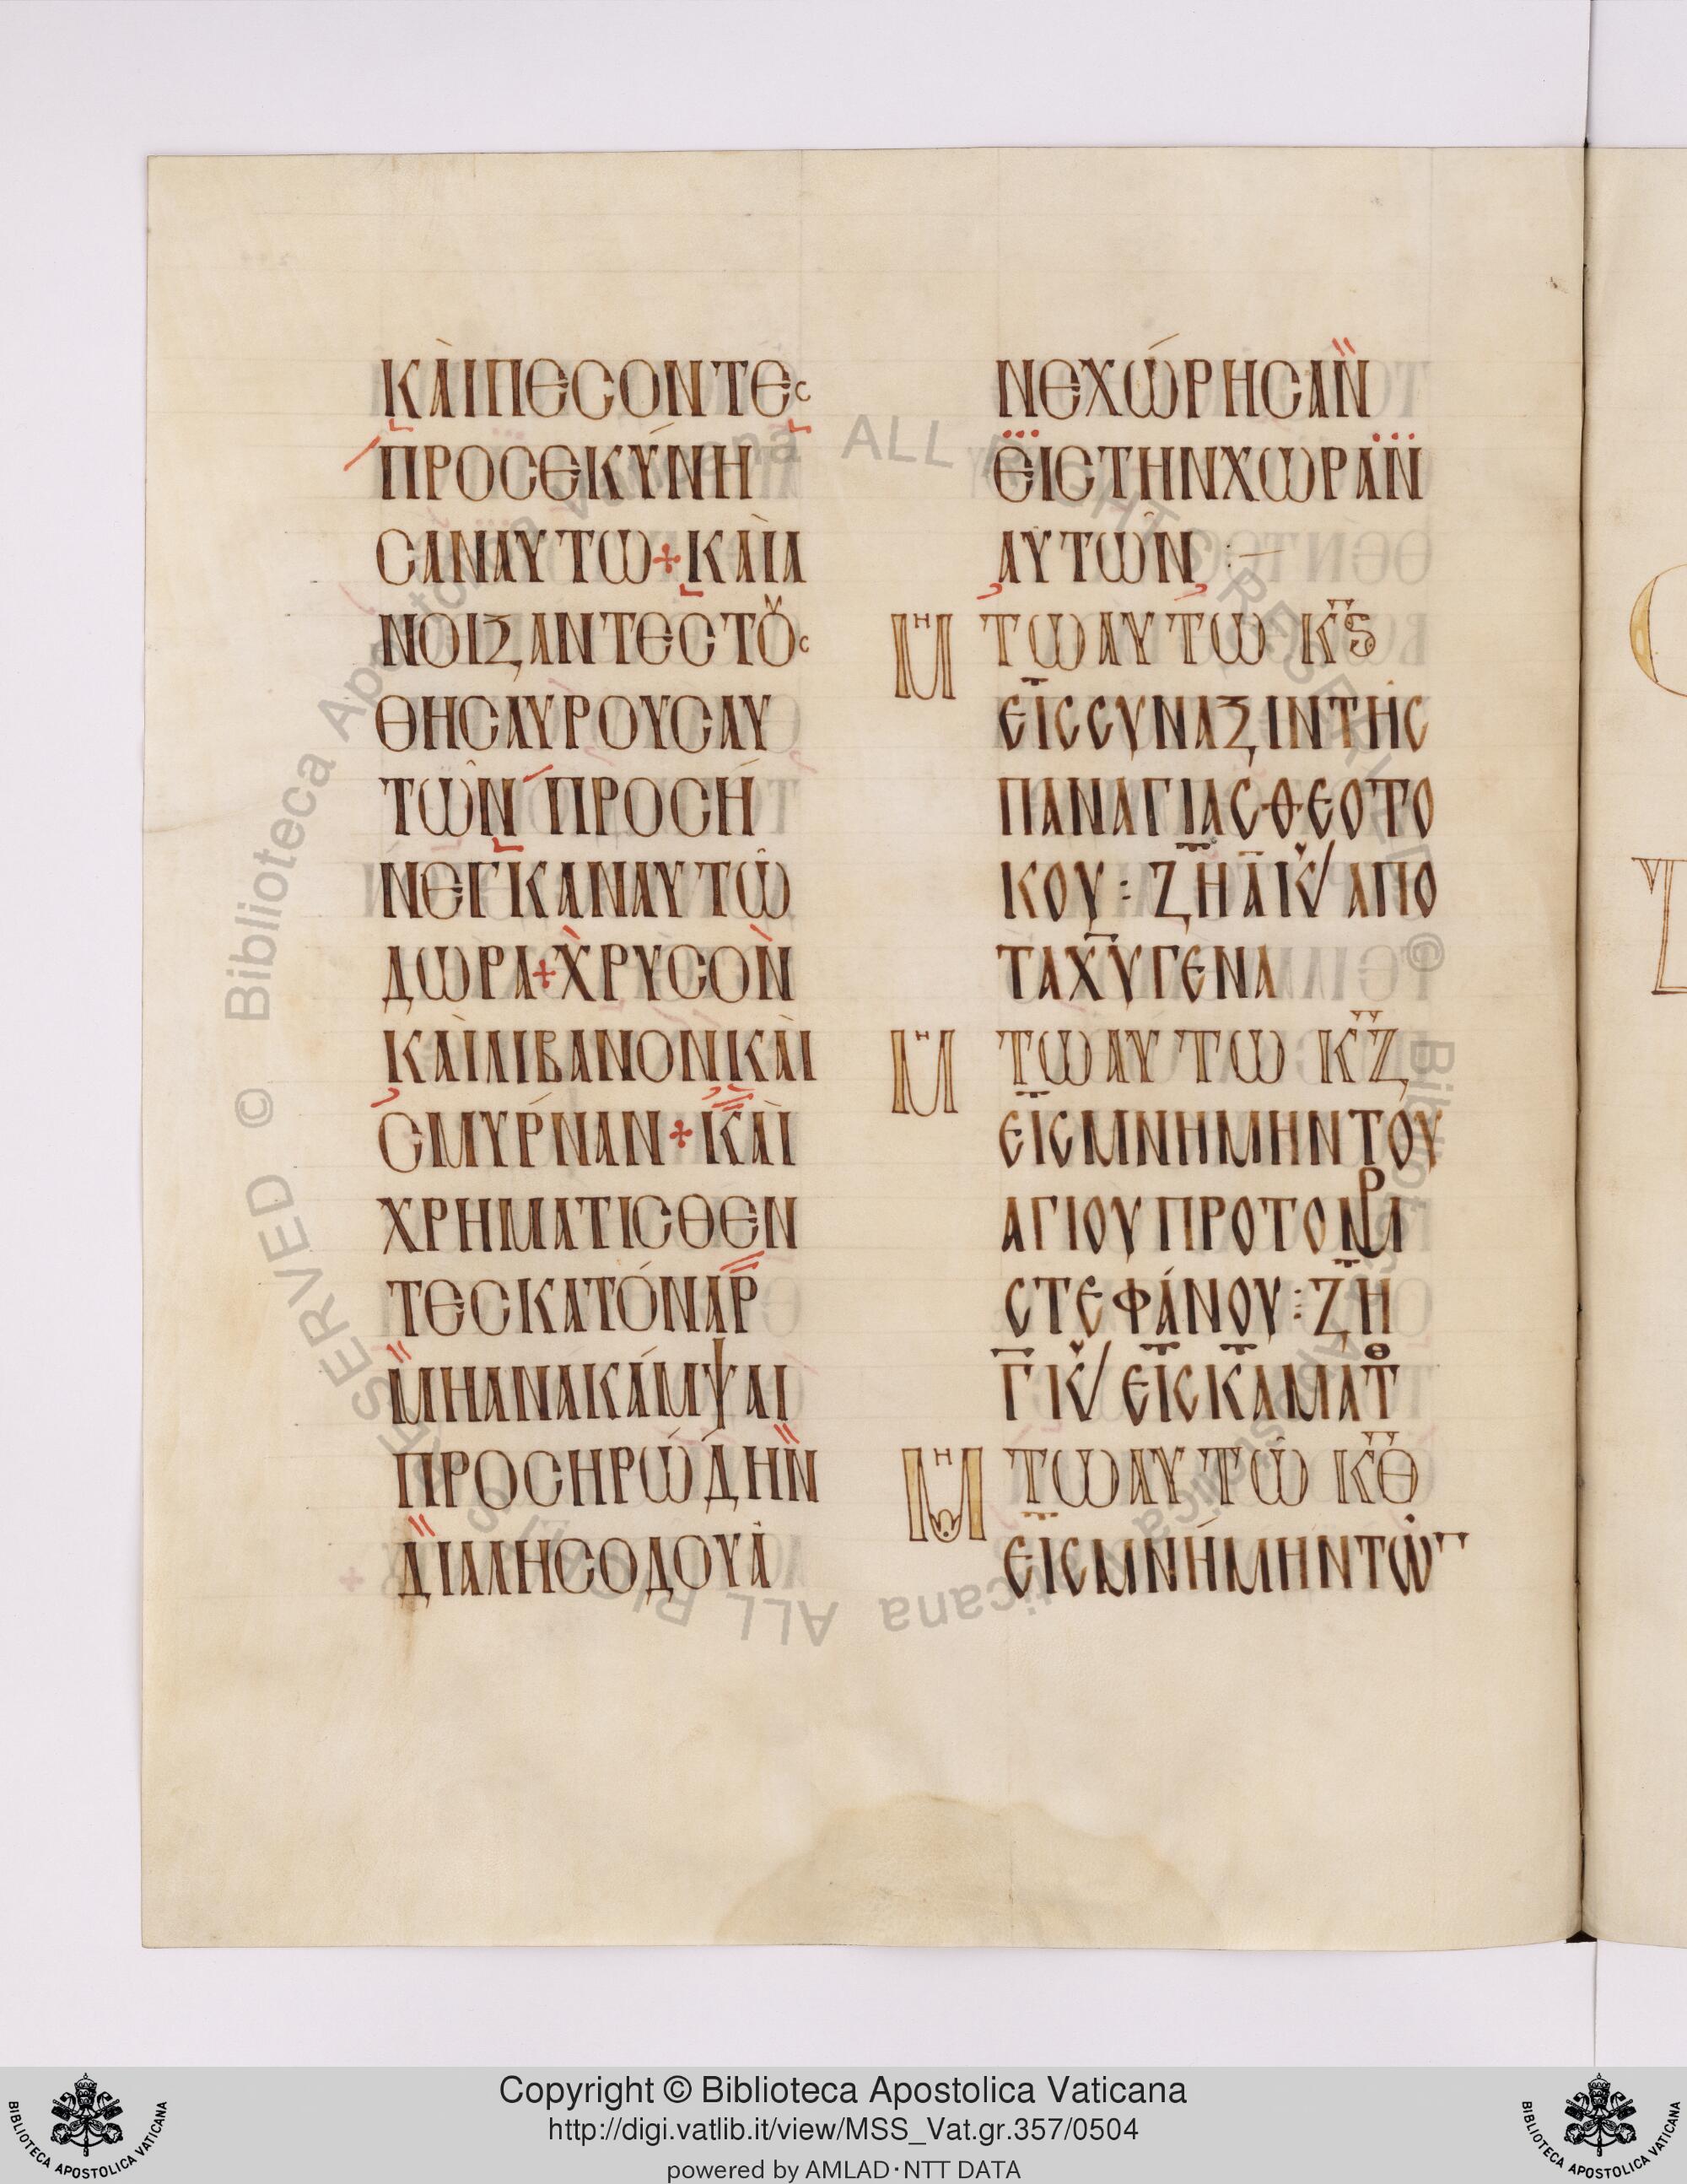 ΚΑὶΠΕCΟΝΤΕC
ΠΡΟCΕΚΎΝΗ
CΑΝΑΥΤΩ+ΚΑὶΑ
ΝΟΙΞΑΝΤΕCΤΟΥC
ΘΗCΑΥΡΟΥCΑΥ
ΤῶΝ ΠΡΟCΉ
ΝΕΓΚΑΝΑΥΤῶ
ΔΩΡΑ+ΧΡΥCΟΝ
ΚΑὶΛΙΒΑΝΟΝΚΑὶ
CΜΥΡΝΑΝ+ΚΑὶ
ΧΡΗΜΑΤΙCΘΕΝ
ΤΕCΚΑΤΌΝΑΡ
ΜΗΑΝΑΚΆΜΨΑΙ
ΠΡΟCΗΡΏΔΗΝ
ΔΙΑΛΗCΟΔΟΥἀ
ΝΕΧΏΡΗCΑΝ
ΕΙCΤΗΝΧΩΡΑΝ
ΑΥΤῶΝ :—
ΜΗ ΤΩΑΥΤΩ ΚϚ
ΕΙCCΥΝΑΞΙΝΤΗC
ΠΑΝΑΓΙΑCΘΕΟΤΟ
ΚΟΥ : ΖΗ Α Κ/ ΑΠΟ
ΤΑΧΥΓΕΝΑ
ΜΗ ΤΩΑΥΤΩ ΚΖ
ΕΙCΜΝΗΜΗΝΤΟΥ
ΑΓΙΟΥΠΡΟΤΟΜΡΙ
CΤΕΦΆΝΟΥ : ΖΗ
Γ Κ/ ΕΙC Κ ΑΜΑΤΘ
ΜΗ ΤΩΑΥΤῶ ΚΘ
ΕΙCΜΝΉΜΗΝΤῶ
© Biblioteca Apostolica Vaticana ALL RIGHTS RESERVED © Biblioteca Apostolica Vaticana ALL RIGHTS RESERVED
Copyright © Biblioteca Apostolica Vaticana
http://digi.vatlib.it/view/MSS_Vat.gr.357/0504
powered by AMLAD·NTT DATA
BIBLIOTECA APOSTOLICA VATICANA
BIBLIOTECA APOSTOLICA VATICANA